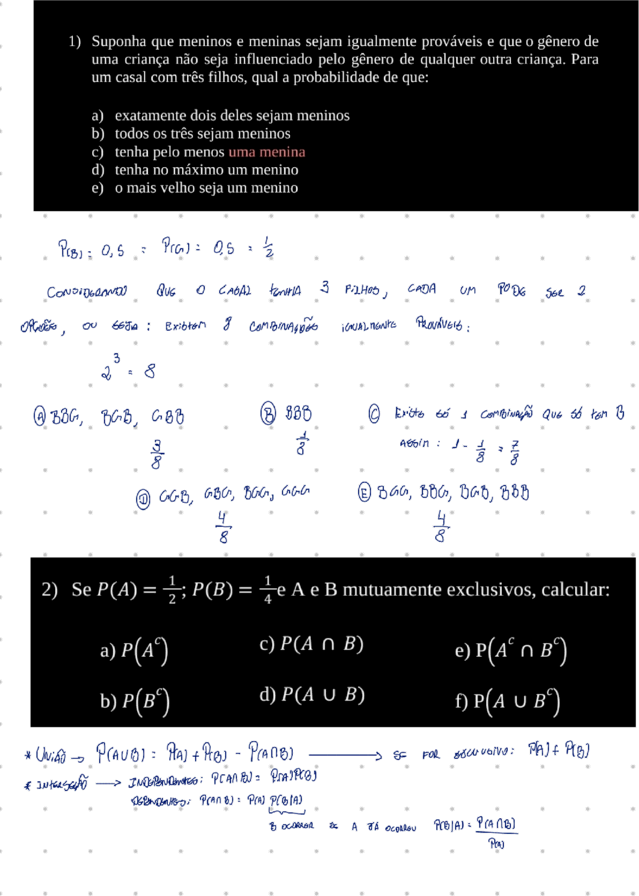 1) Suponha que meninos e meninas sejam igualmente prováveis e que o gênero de
uma criança não seja influenciado pelo gênero de qualquer outra criança. Para
um casal com três filhos, qual a probabilidade de que:
a) exatamente dois deles sejam meninos
b) todos os três sejam meninos
c) tenha pelo menos uma menina
d) tenha no máximo um menino
e) o mais velho seja um menino
P(B) = 0,5 = P(G) = 0,5 = 1/2
CONSIDERANDO QUE O CASAL TENHA 3 FILHOS, CADA UM PODE SER 2
OPÇÕES, OU SEJA: EXISTEM 8 COMBINAÇÕES IGUALMENTE PROVÁVEIS:
2³ = 8
(A) BBG, BGB, GBB
3/8
(B) BBB
1/8
(C) EXISTE SÓ 1 COMBINAÇÃO QUE SÓ TEM B
ASSIM: 1 - 1/8 = 7/8
(D) GGB, GBG, BGG, GGG
4/8
(E) BGG, BBG, BGB, BBB
4/8
2) Se P(A) = 1/2; P(B) = 1/4 e A e B mutuamente exclusivos, calcular:
a) P(Aᶜ) c) P(A ∩ B) e) P(Aᶜ ∩ Bᶜ)
b) P(Bᶜ) d) P(A ∪ B) f) P(A ∪ Bᶜ)
* UNIÃO → P(A∪B) = P(A) + P(B) - P(A∩B) → SE FOR EXCLUSIVO: P(A) + P(B)
* INTERSEÇÃO → INDEPENDENTES: P(A∩B) = P(A)P(B)
DEPENDENTES: P(A∩B) = P(A) P(B|A)
B OCORRER SE A JÁ OCORREU P(B|A) = P(A∩B)/P(A)